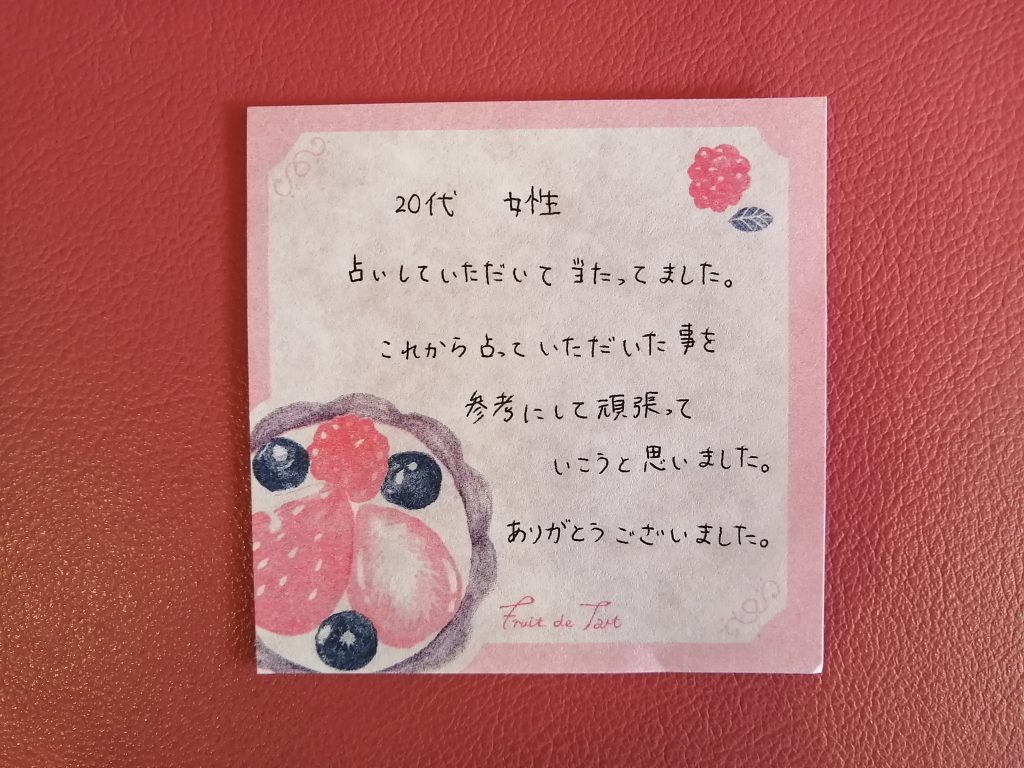 20代 女性
占いしていただいて当たってました。
これから占っていただいた事を
参考にして頑張って
いこうと思いました。
ありがとうございました。
Fruit de Tart